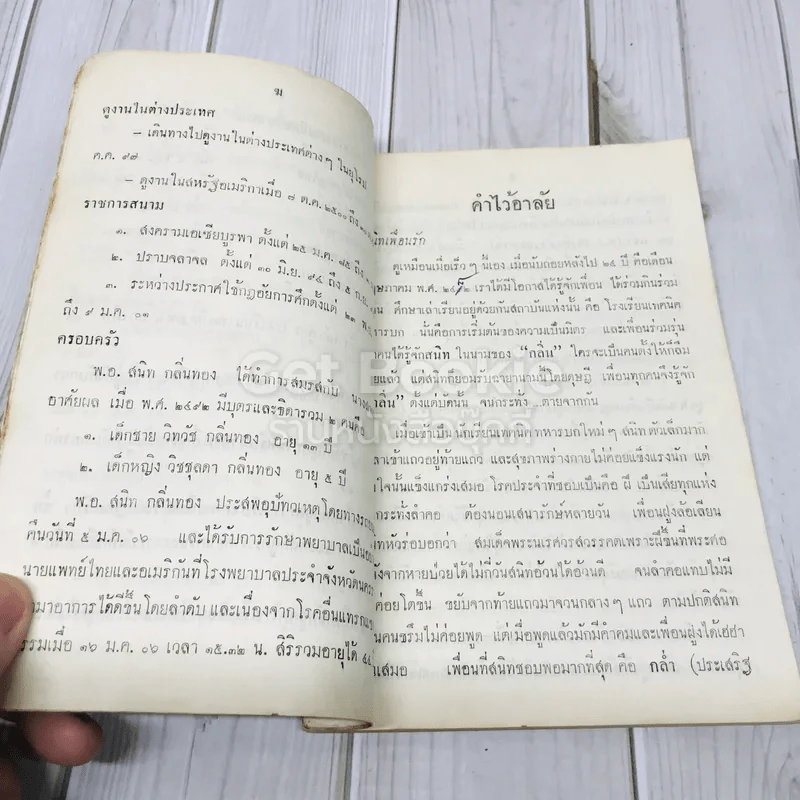 ฆ
ดูงานในต่างประเทศ
– เดินทางไปดูงานในต่างประเทศต่างๆ ในยุโรป
ต.ค. ๙๗
– ดูงานในสหรัฐอเมริกาเมื่อ ๘ ต.ค. ๒๕๐๐ ถึง
ราชการสนาม
๑. สงครามเอเซียบูรพา ตั้งแต่ ๒๕ ม.ค. ๘๕ ถึง
๒. ปราบจลาจล ตั้งแต่ ๓๐ มิ.ย. ๙๔ ถึง ๕ ก.ย.
๓. ระหว่างประกาศใช้กฎอัยการศึกตั้งแต่ ๒๓ พ.ย.
ถึง ๙ ม.ค. ๐๑
ครอบครัว
พ.อ. สนิท กลิ่นทอง ได้ทำการสมรสกับ นาง
อาศัยผล เมื่อ พ.ศ. ๒๔๙๒ มีบุตรและธิดารวม ๒ คนคือ
๑. เด็กชาย วิทวัช กลิ่นทอง อายุ ๑๓ ปี
๒. เด็กหญิง วิชชุลดา กลิ่นทอง อายุ ๕ ปี
พ.อ. สนิท กลิ่นทอง ประสพอุบัทวเหตุโดยทาง
คืนวันที่ ๕ ม.ค. ๐๖ และได้รับการรักษาพยาบาลเป็น
นายแพทย์ไทยและอเมริกันที่โรงพยาบาลประจำจังหวัด
มาอาการได้ดีขึ้นโดยลำดับ และเนื่องจากโรคอื่นแทรก
รรมเมื่อ ๑๖ ม.ค. ๐๖ เวลา ๑๕.๓๒ น. สิริรวมอายุได้ ๔๔
คำไว้อาลัย
นิทเพื่อนรัก
ดูเหมือนเมื่อเร็วๆ นี้เอง เมื่อนับถอยหลังไป ๒๔ ปี คือเดือน
ษภาคม พ.ศ. ๒๔๘๒ เราได้มีโอกาสได้รู้จักเพื่อน ได้ร่วมกินร่วม
น ศึกษาเล่าเรียนอยู่ด้วยกันสถาบันแห่งนั้น คือ โรงเรียนเทคนิค
ารบก นั่นคือการเริ่มต้นของความเป็นมิตร และเพื่อนร่วมรุ่น
คนได้รู้จักสนิท ในนามของ “กลิ่น” ใครจะเป็นคนตั้งให้ก็ลืม
ยแล้ว แต่สนิทก็ยอมรับฉายานามนี้โดยดุษฎี เพื่อนทุกคนจึงรู้จัก
ลิ่น” ตั้งแต่บัดนั้น จนกระทั่ง ตายจากกัน
เมื่อเข้าเป็นนักเรียนเทคนิคทหารบกใหม่ๆ สนิทตัวเล็กมาก
ลาเข้าแถวอยู่ท้ายแถว และสุขภาพร่างกายไม่ค่อยแข็งแรงนัก แต่
ใจนั้นแข็งแกร่งเสมอ โรคประจำที่ชอบเป็นคือ ฝี เป็นเสียทุกแห่ง
กระทั่งลำคอ ต้องนอนเสนารักษ์หลายวัน เพื่อนฝูงล้อเลียน
ทหัวร่อบอกว่า สมเด็จพระนเรศวรสวรรคตเพราะฝีขึ้นที่พระศอ
ังจากหายป่วยได้ไม่กี่วันสนิทอ้วนได้อ้วนดี จนลำคอแทบไม่มี
ค่อยโตขึ้น ขยับจากท้ายแถวมาจวนกลางๆ แถว ตามปกติสนิท
นคนขรึมไม่ค่อยพูด แต่เมื่อพูดแล้วมักมีคำคมและเพื่อนฝูงได้เฮฮา
นเสมอ เพื่อนที่สนิทชอบพอมากที่สุด คือ กล่ำ (ประเสริฐ
Get Bookie
ร้านหนังสือกู๊ดดี้